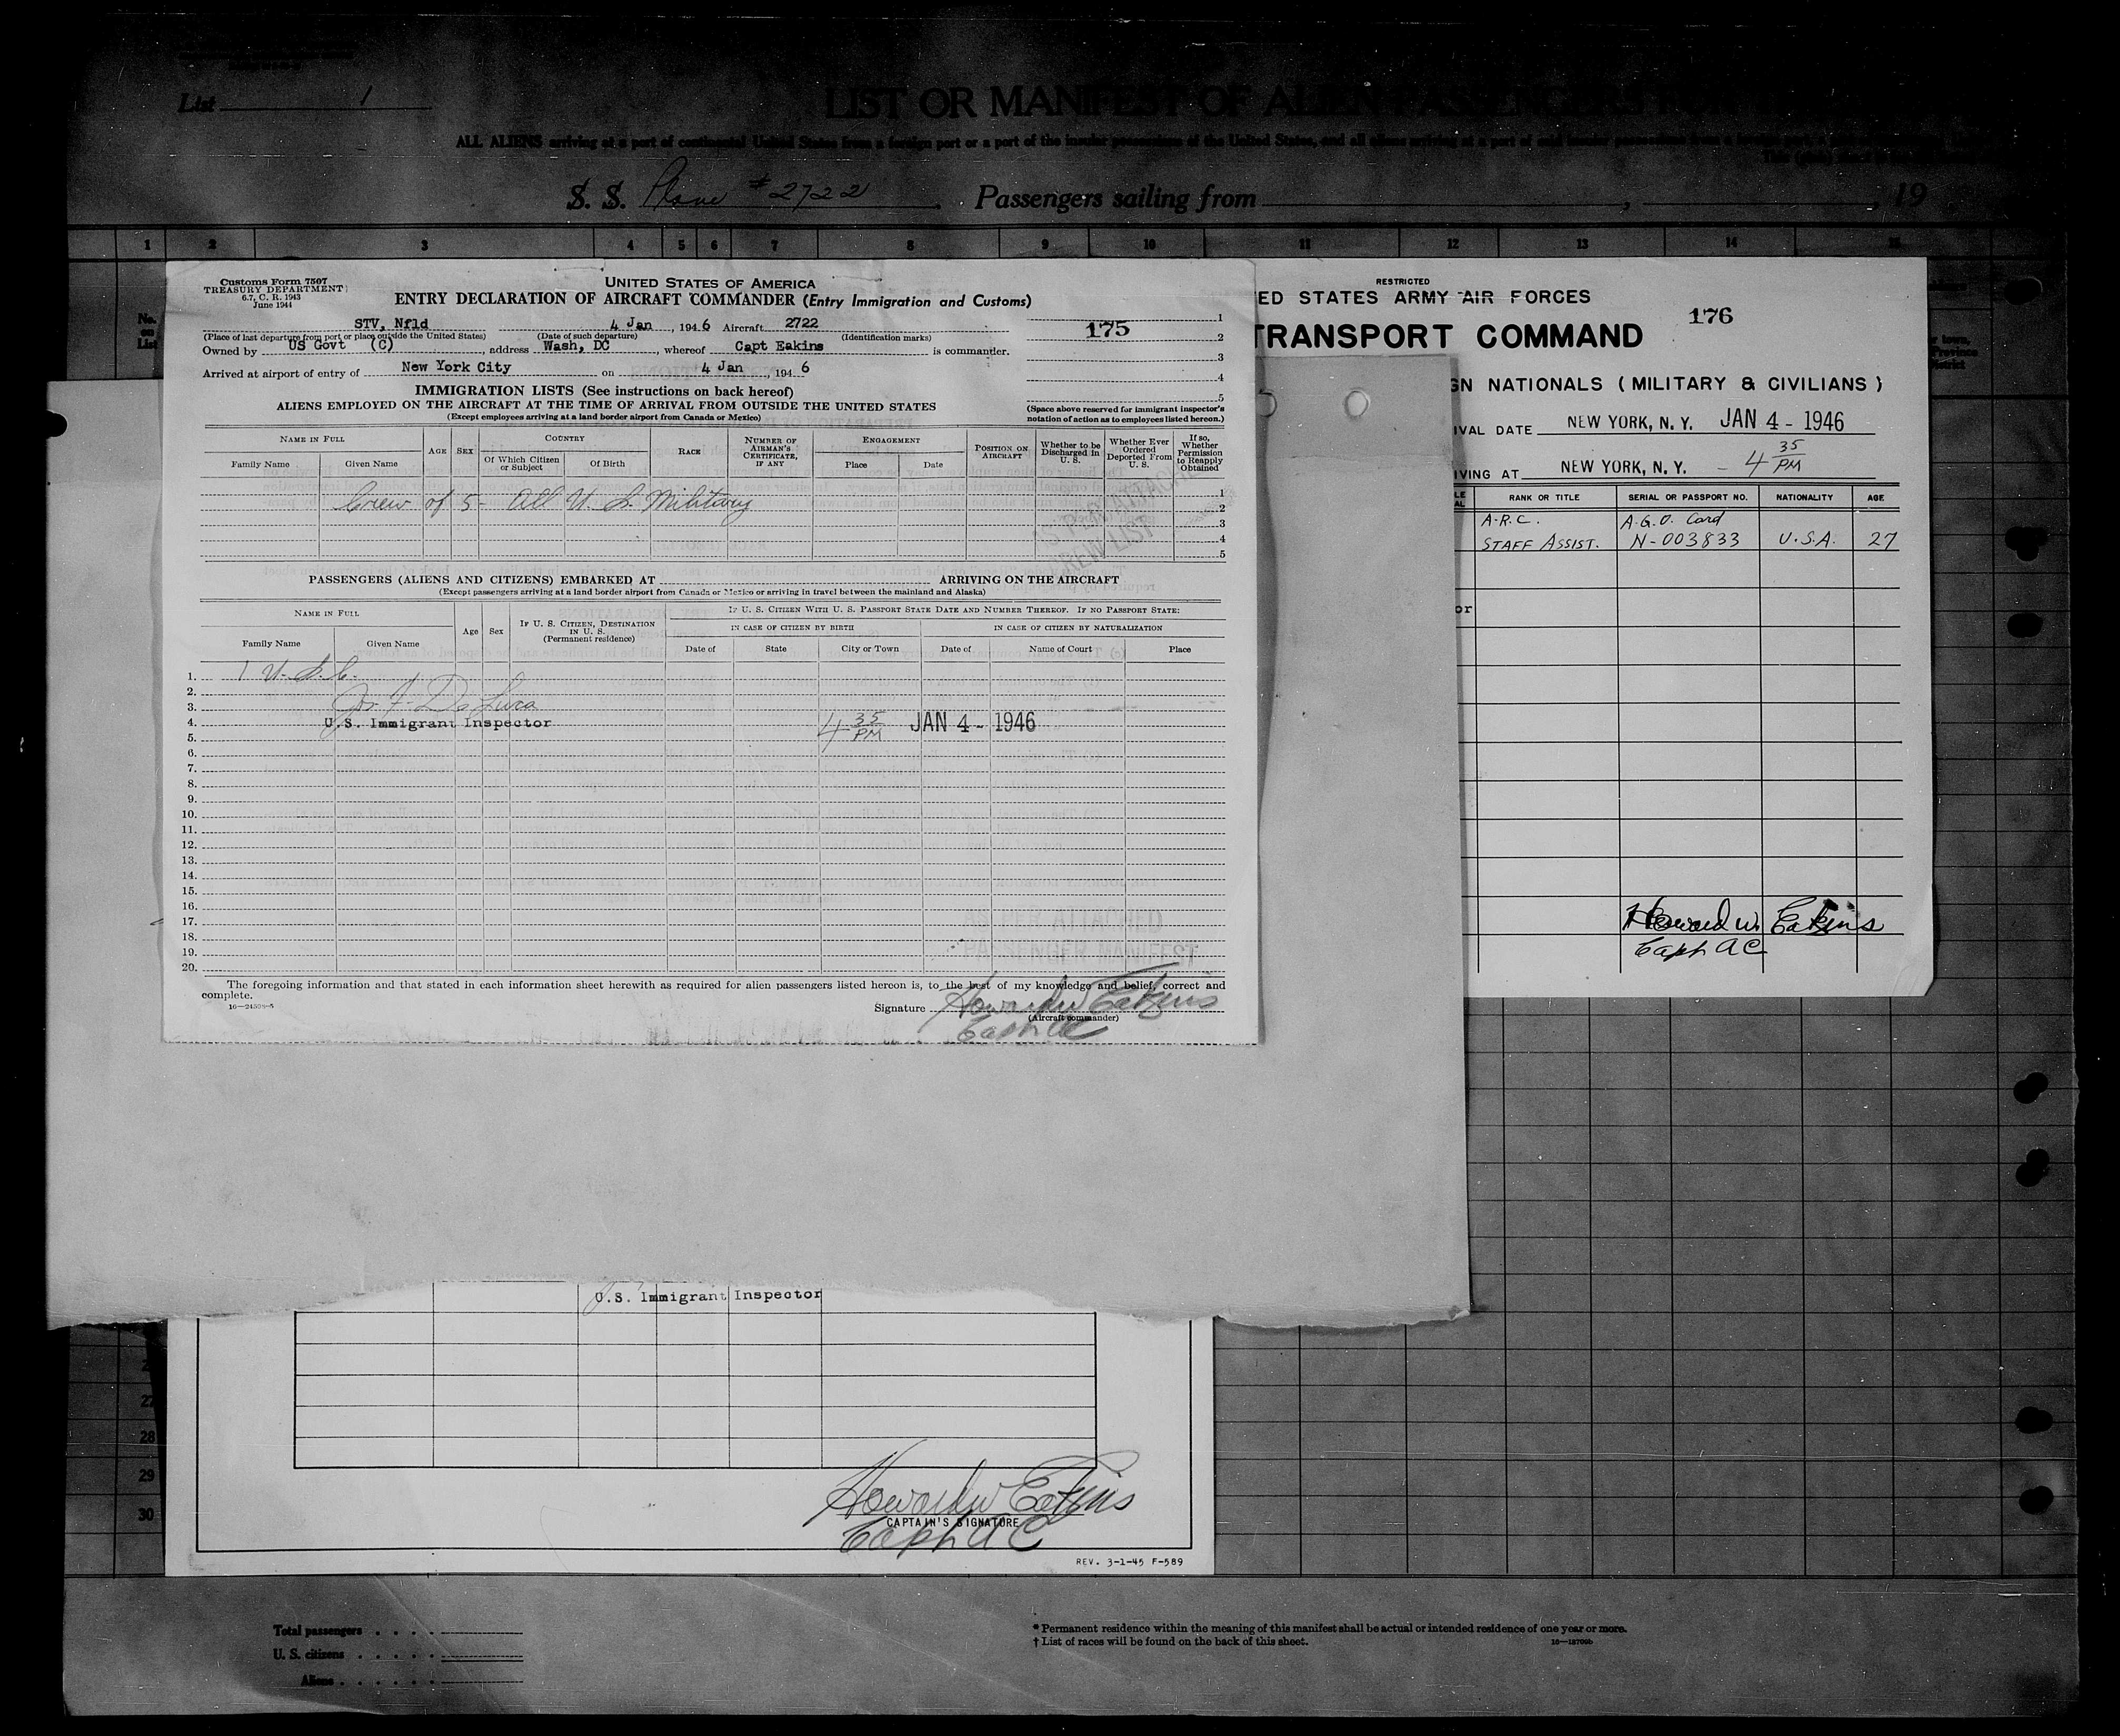 List 1
LIST OR MANIFEST OF ALIEN PASSENGERS FOR
ALL ALIENS arriving at a port of continental United States from a foreign port or a port of the insular possessions of the United States, and all aliens arriving at a port of said insular possessions from a
S. S. Plane #2722 Passengers sailing from , , 19
1 2 3 4 5 6 7 8 9 10 11 12 13 14 15
No. on List
Customs Form 7507
TREASURY DEPARTMENT
6.7, C. R. 1943
June 1944
UNITED STATES OF AMERICA
ENTRY DECLARATION OF AIRCRAFT COMMANDER (Entry Immigration and Customs)
STV, Nfld 4 Jan, 1946 Aircraft 2722
(Place of last departure from port or place outside the United States) (Date of such departure) (Identification marks)
Owned by US Govt (C), address Wash, DC, whereof Capt Eakins is commander.
Arrived at airport of entry of New York City on 4 Jan, 1946
175
1
2
3
4
5
(Space above reserved for immigrant inspector's notation of action as to employees listed hereon.)
IMMIGRATION LISTS (See instructions on back hereof)
ALIENS EMPLOYED ON THE AIRCRAFT AT THE TIME OF ARRIVAL FROM OUTSIDE THE UNITED STATES
(Except employees arriving at a land border airport from Canada or Mexico)
NAME IN FULL AGE SEX COUNTRY RACE NUMBER OF AIRMAN'S CERTIFICATE, IF ANY ENGAGEMENT POSITION ON AIRCRAFT Whether to be Discharged in U. S. Whether Ever Ordered Deported From U. S. If so, Whether Permission to Reapply Obtained
Family Name Given Name Of Which Citizen or Subject Of Birth Place Date
Crew of 5 - All U. S. Military
1
2
3
4
5
AS PER ATTACHED
CREW LIST
PASSENGERS (ALIENS AND CITIZENS) EMBARKED AT ARRIVING ON THE AIRCRAFT
(Except passengers arriving at a land border airport from Canada or Mexico or arriving in travel between the mainland and Alaska)
NAME IN FULL Age Sex IF U. S. CITIZEN, DESTINATION IN U. S. (Permanent residence) IF U. S. CITIZEN WITH U. S. PASSPORT STATE DATE AND NUMBER THEREOF. IF NO PASSPORT STATE:
IN CASE OF CITIZEN BY BIRTH IN CASE OF CITIZEN BY NATURALIZATION
Family Name Given Name Date of State City or Town Date of Name of Court Place
1. 1 U.S.C.
2.
3. Jos. F. De Luca
4. U.S. Immigrant Inspector 4 35 PM JAN 4 - 1946
5.
6.
7.
8.
9.
10.
11.
12.
13.
14.
15.
16.
17. AS PER ATTACHED
18.
19. PASSENGER MANIFEST
20.
The foregoing information and that stated in each information sheet herewith as required for alien passengers listed hereon is, to the best of my knowledge and belief, correct and complete.
16—24598-5
Signature Howard W Eakins
(Aircraft commander)
Capt AC
RESTRICTED
ED STATES ARMY AIR FORCES
176
TRANSPORT COMMAND
GN NATIONALS (MILITARY & CIVILIANS)
IVAL DATE NEW YORK, N. Y. JAN 4 - 1946
IVING AT NEW YORK, N. Y. - 4 35 PM
RANK OR TITLE SERIAL OR PASSPORT NO. NATIONALITY AGE
A.R.C. A.G.O. Card
STAFF ASSIST. N-003833 U.S.A. 27
or
Howard W. Eakins
Capt AC
U.S. Immigrant Inspector
27
28
29
30
Howard W Eakins
CAPTAIN'S SIGNATURE
Capt AC
REV. 3-1-45 F-589
Total passengers
U. S. citizens
Aliens
* Permanent residence within the meaning of this manifest shall be actual or intended residence of one year or more.
† List of races will be found on the back of this sheet.